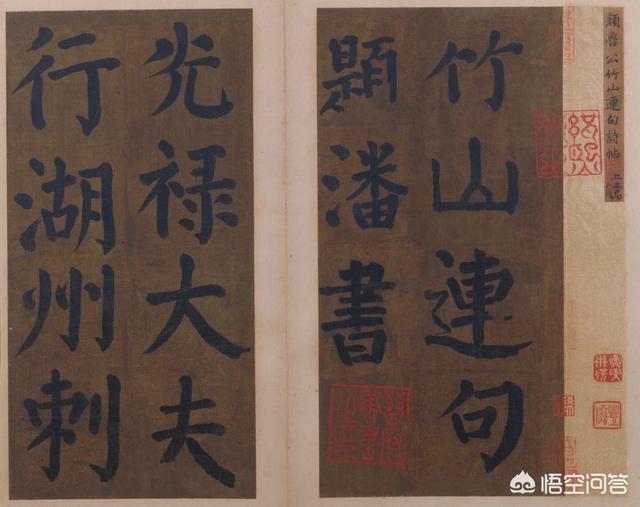 顏魯公竹山連句詩帖
竹山連句
題潘書
光禄大夫
行湖州刺
悟空问答